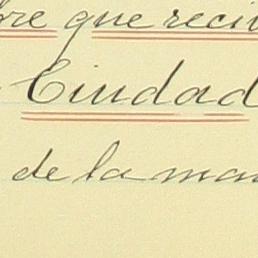 bre que reciv
Ciudad
de la ma